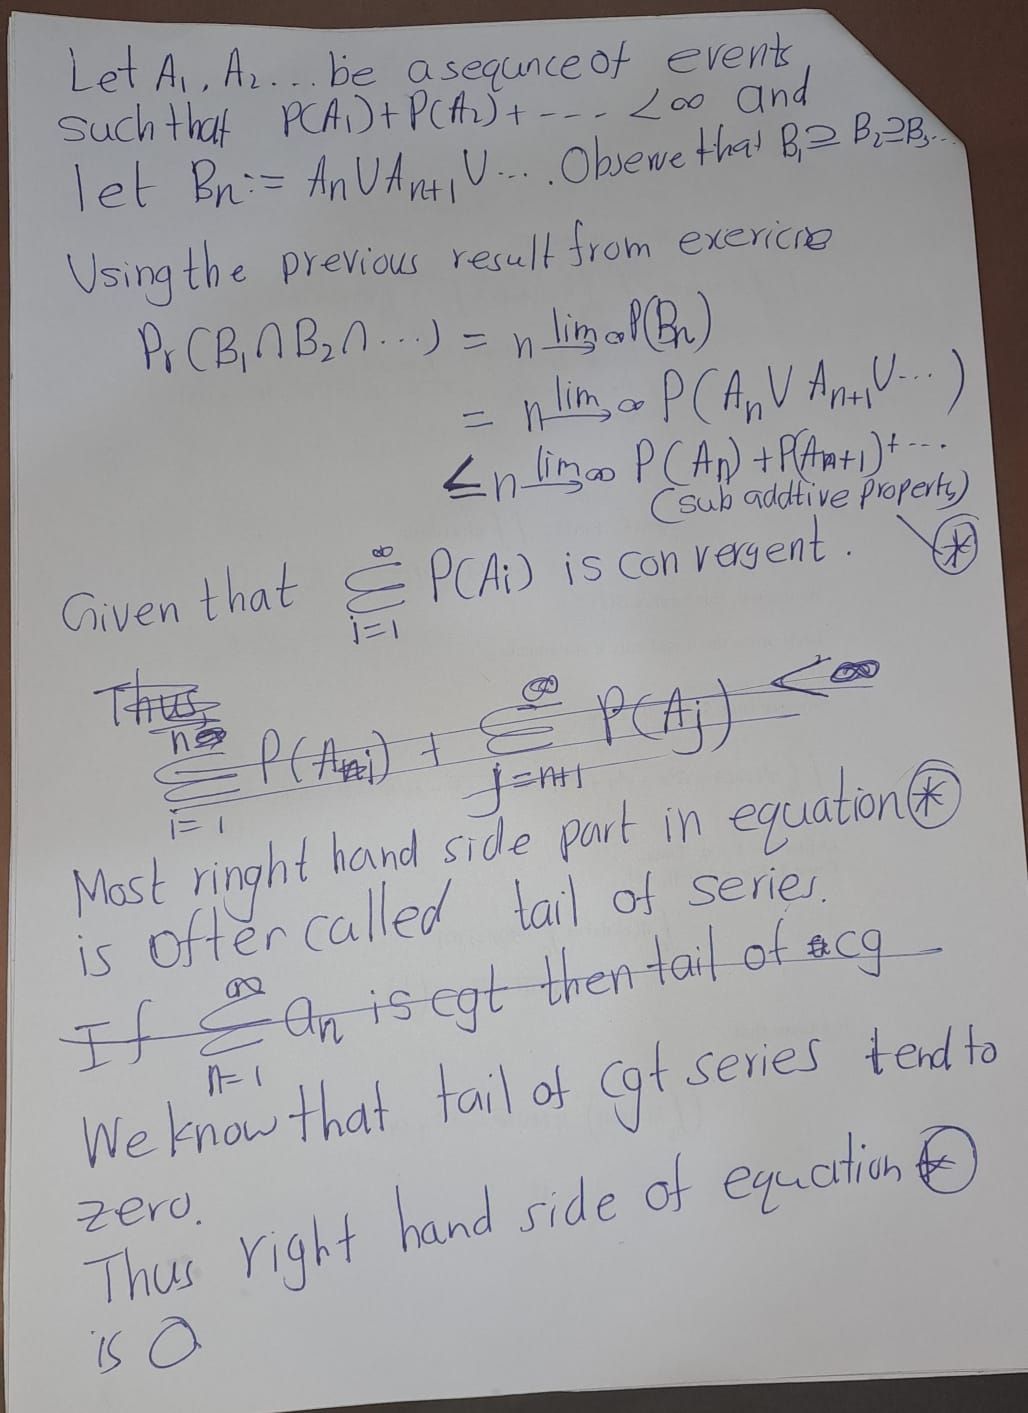 Let A₁, A₂... be a sequnce of events
such that P(A₁)+P(A₂)+---- <∞ and
let Bn:= An∪An+1∪.... Observe that B₁⊇ B₂⊇B₃...
Using the previous result from
Pr(B₁∩B₂∩...) = n lim→∞ P(Bn)
= n lim→∞ P(An∪An+1∪...)
≤ n lim→∞ P(An)+P(An+1)+---.
(sub addtive Property)
Given that ∞∑i=1 P(Ai) is convergent. ⊛
Thus,
∑i=1 P(Ai) + ∞∑j=n+1 P(Aj) <∞
Most ringht hand side part in equation ⊛
is ofter called tail of series.
If ∞∑n=1 an is cgt then tail of cg
We know that tail of cgt series tend to
zero.
Thus right hand side of equation ⊛
is 0